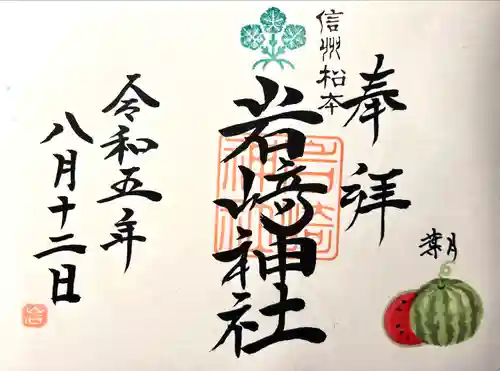 奉拝
信州松本
岩﨑神社
岩崎神社
葉月
令和五年
八月十二日